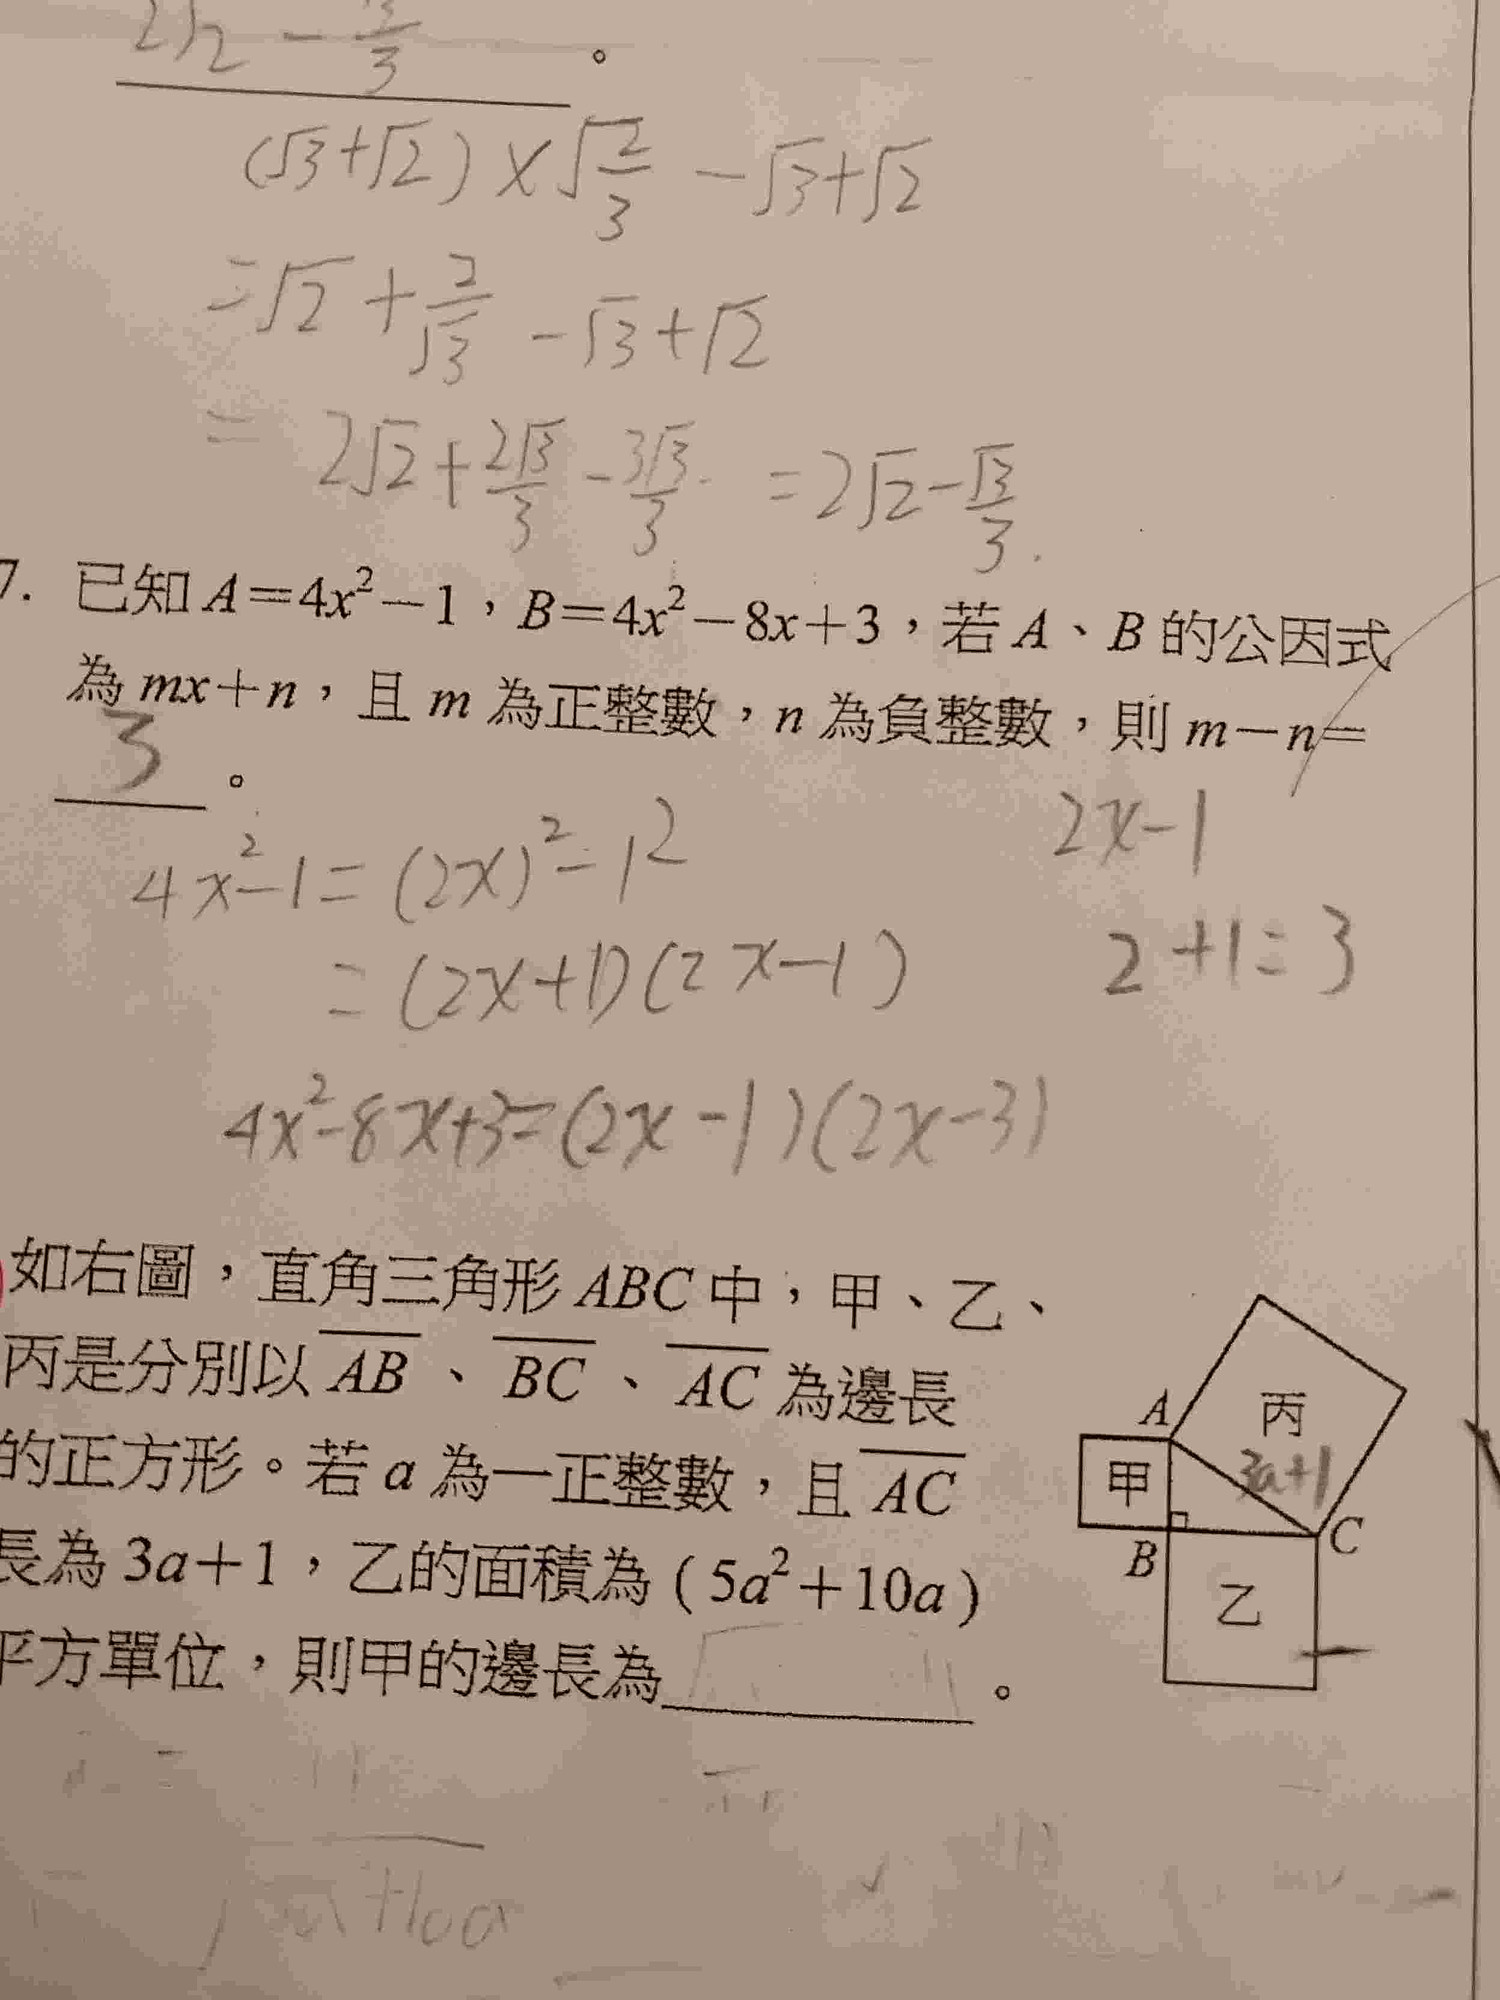 2√2 - √3/3 。
(√3+√2) × √2/3 - √3+√2
= √2 + 2/√3 - √3+√2
= 2√2 + 2√3/3 - 3√3/3 = 2√2 - √3/3
7. 已知 A=4x²-1，B=4x²-8x+3，若 A、B 的公因式
為 mx+n，且 m 為正整數，n 為負整數，則 m-n=
3 。
4x²-1 = (2x)²-1²
= (2x+1)(2x-1)
4x²-8x+3=(2x-1)(2x-3)
2x-1
2+1=3
如右圖，直角三角形 ABC 中，甲、乙、
丙是分別以 AB、BC、AC 為邊長
的正方形。若 a 為一正整數，且 AC
長為 3a+1，乙的面積為 (5a²+10a)
平方單位，則甲的邊長為 。
A
丙
3a+1
甲
B
C
乙
+10a